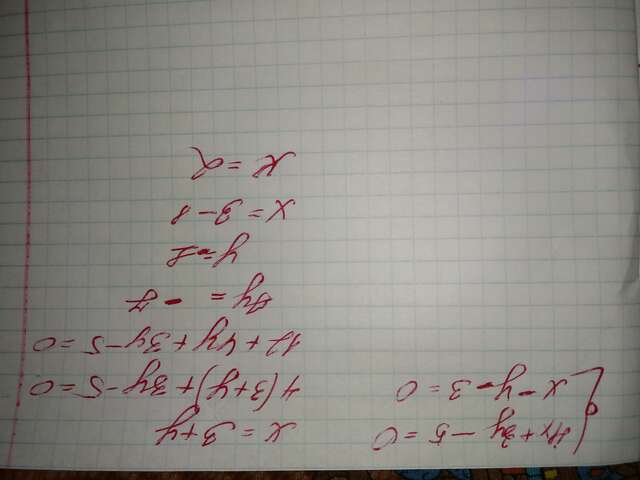 4x + 3y - 5 = 0
x - y - 3 = 0
x = 3 + y
4(3+y) + 3y - 5 = 0
12 + 4y + 3y - 5 = 0
7y = - 7
y = - 1
x = 3 - 1
x = 2